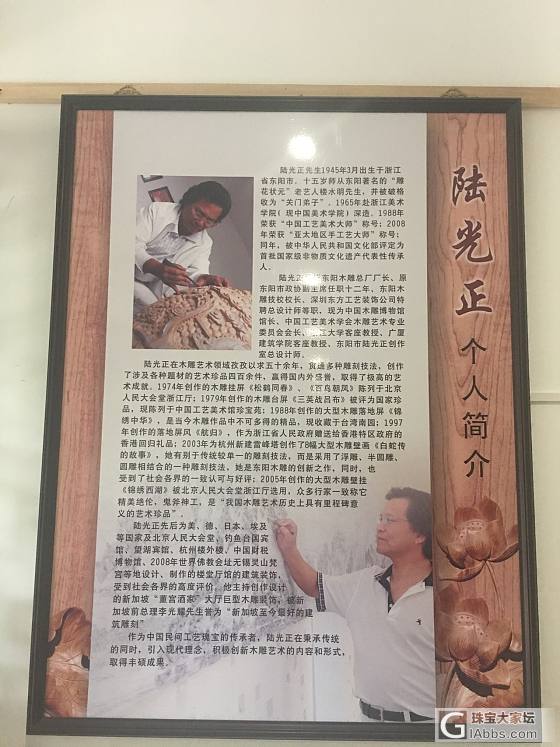 陆光正
个人简介
陆光正先生1945年3月出生于浙江
省东阳市。十五岁师从东阳著名的“雕
花状元”老艺人楼水明先生，并被破格
收为“关门弟子”。1965年赴浙江美术
学院（现中国美术学院）深造。1988年
荣获“中国工艺美术大师”称号；2008
年荣获“亚太地区手工艺大师”称号；
同年，被中华人民共和国文化部评定为
首批国家级非物质文化遗产代表性传承
人。
陆光正 东阳木雕总厂厂长、原
东阳市政协副主席任职十二年、东阳木
雕技校校长、深圳东方工艺装饰公司特
聘总设计师等职，现为中国木雕博物馆
馆长、中国工艺美术学会木雕艺术专业
委员会会长、 江大学客座教授、广厦
建筑学院客座教授、东阳市陆光正创作
室总设计师。
陆光正在木雕艺术领域孜孜以求五十余年，贯通多种雕刻技法，创作
了涉及各种题材的艺术珍品四百余件，赢得国内外盛誉，取得了极高的艺
术成就。1974年创作的木雕挂屏《松鹤同春》、《百鸟朝凤》陈列于北京
人民大会堂浙江厅；1979年创作的木雕台屏《三英战吕布》被评为国家珍
品，现陈列于中国工艺美术馆珍宝苑；1988年创作的大型木雕落地屏《锦
绣中华》，是当今木雕作品中不可多得的精品，现收藏于台湾南园；1997
年创作的落地屏风《航归》，作为浙江省人民政府赠送给香港特区政府的
香港回归礼品；2003年为杭州新建雷峰塔创作了8幅大型木雕壁画《白蛇传
的故事》，她有别于传统较单一的雕刻技法，而是采用了浮雕、半圆雕、
圆雕相结合的一种雕刻技法，她是东阳木雕的创新之作，同时，也
受到了社会各界的一致认可与好评；2005年创作的大型木雕壁挂
《锦绣西湖》被北京人民大会堂浙江厅选用，众多行家一致称它
精美绝伦，鬼斧神工，是“我国木雕艺术历史上具有里程碑意
义的艺术珍品”。
陆光正先后为美、德、日本、埃及
等国家及北京人民大会堂、钓鱼台国宾
馆、望湖宾馆、杭州楼外楼、中国财税
博物馆、2008年世界佛教会址无锡灵山梵
宫等地设计、制作的楼堂厅馆的建筑装饰，
受到社会各界的高度评价。他主持创作设计
的新加坡“董宫酒家”大厅巨型木雕装饰，被新
加坡前总理李光耀先生誉为“新加坡至今最好的建
筑雕刻”
作为中国民间工艺瑰宝的传承者，陆光正在秉承传统
的同时，引入现代理念，积极创新木雕艺术的内容和形式，
取得丰硕成果。
珠宝大家坛
GIAbbs.com